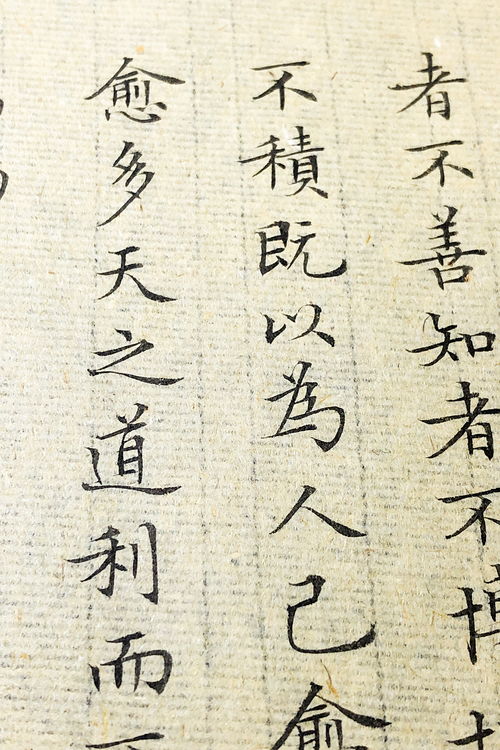 者不善知者不博
不積既以為人己愈
愈多天之道利而不